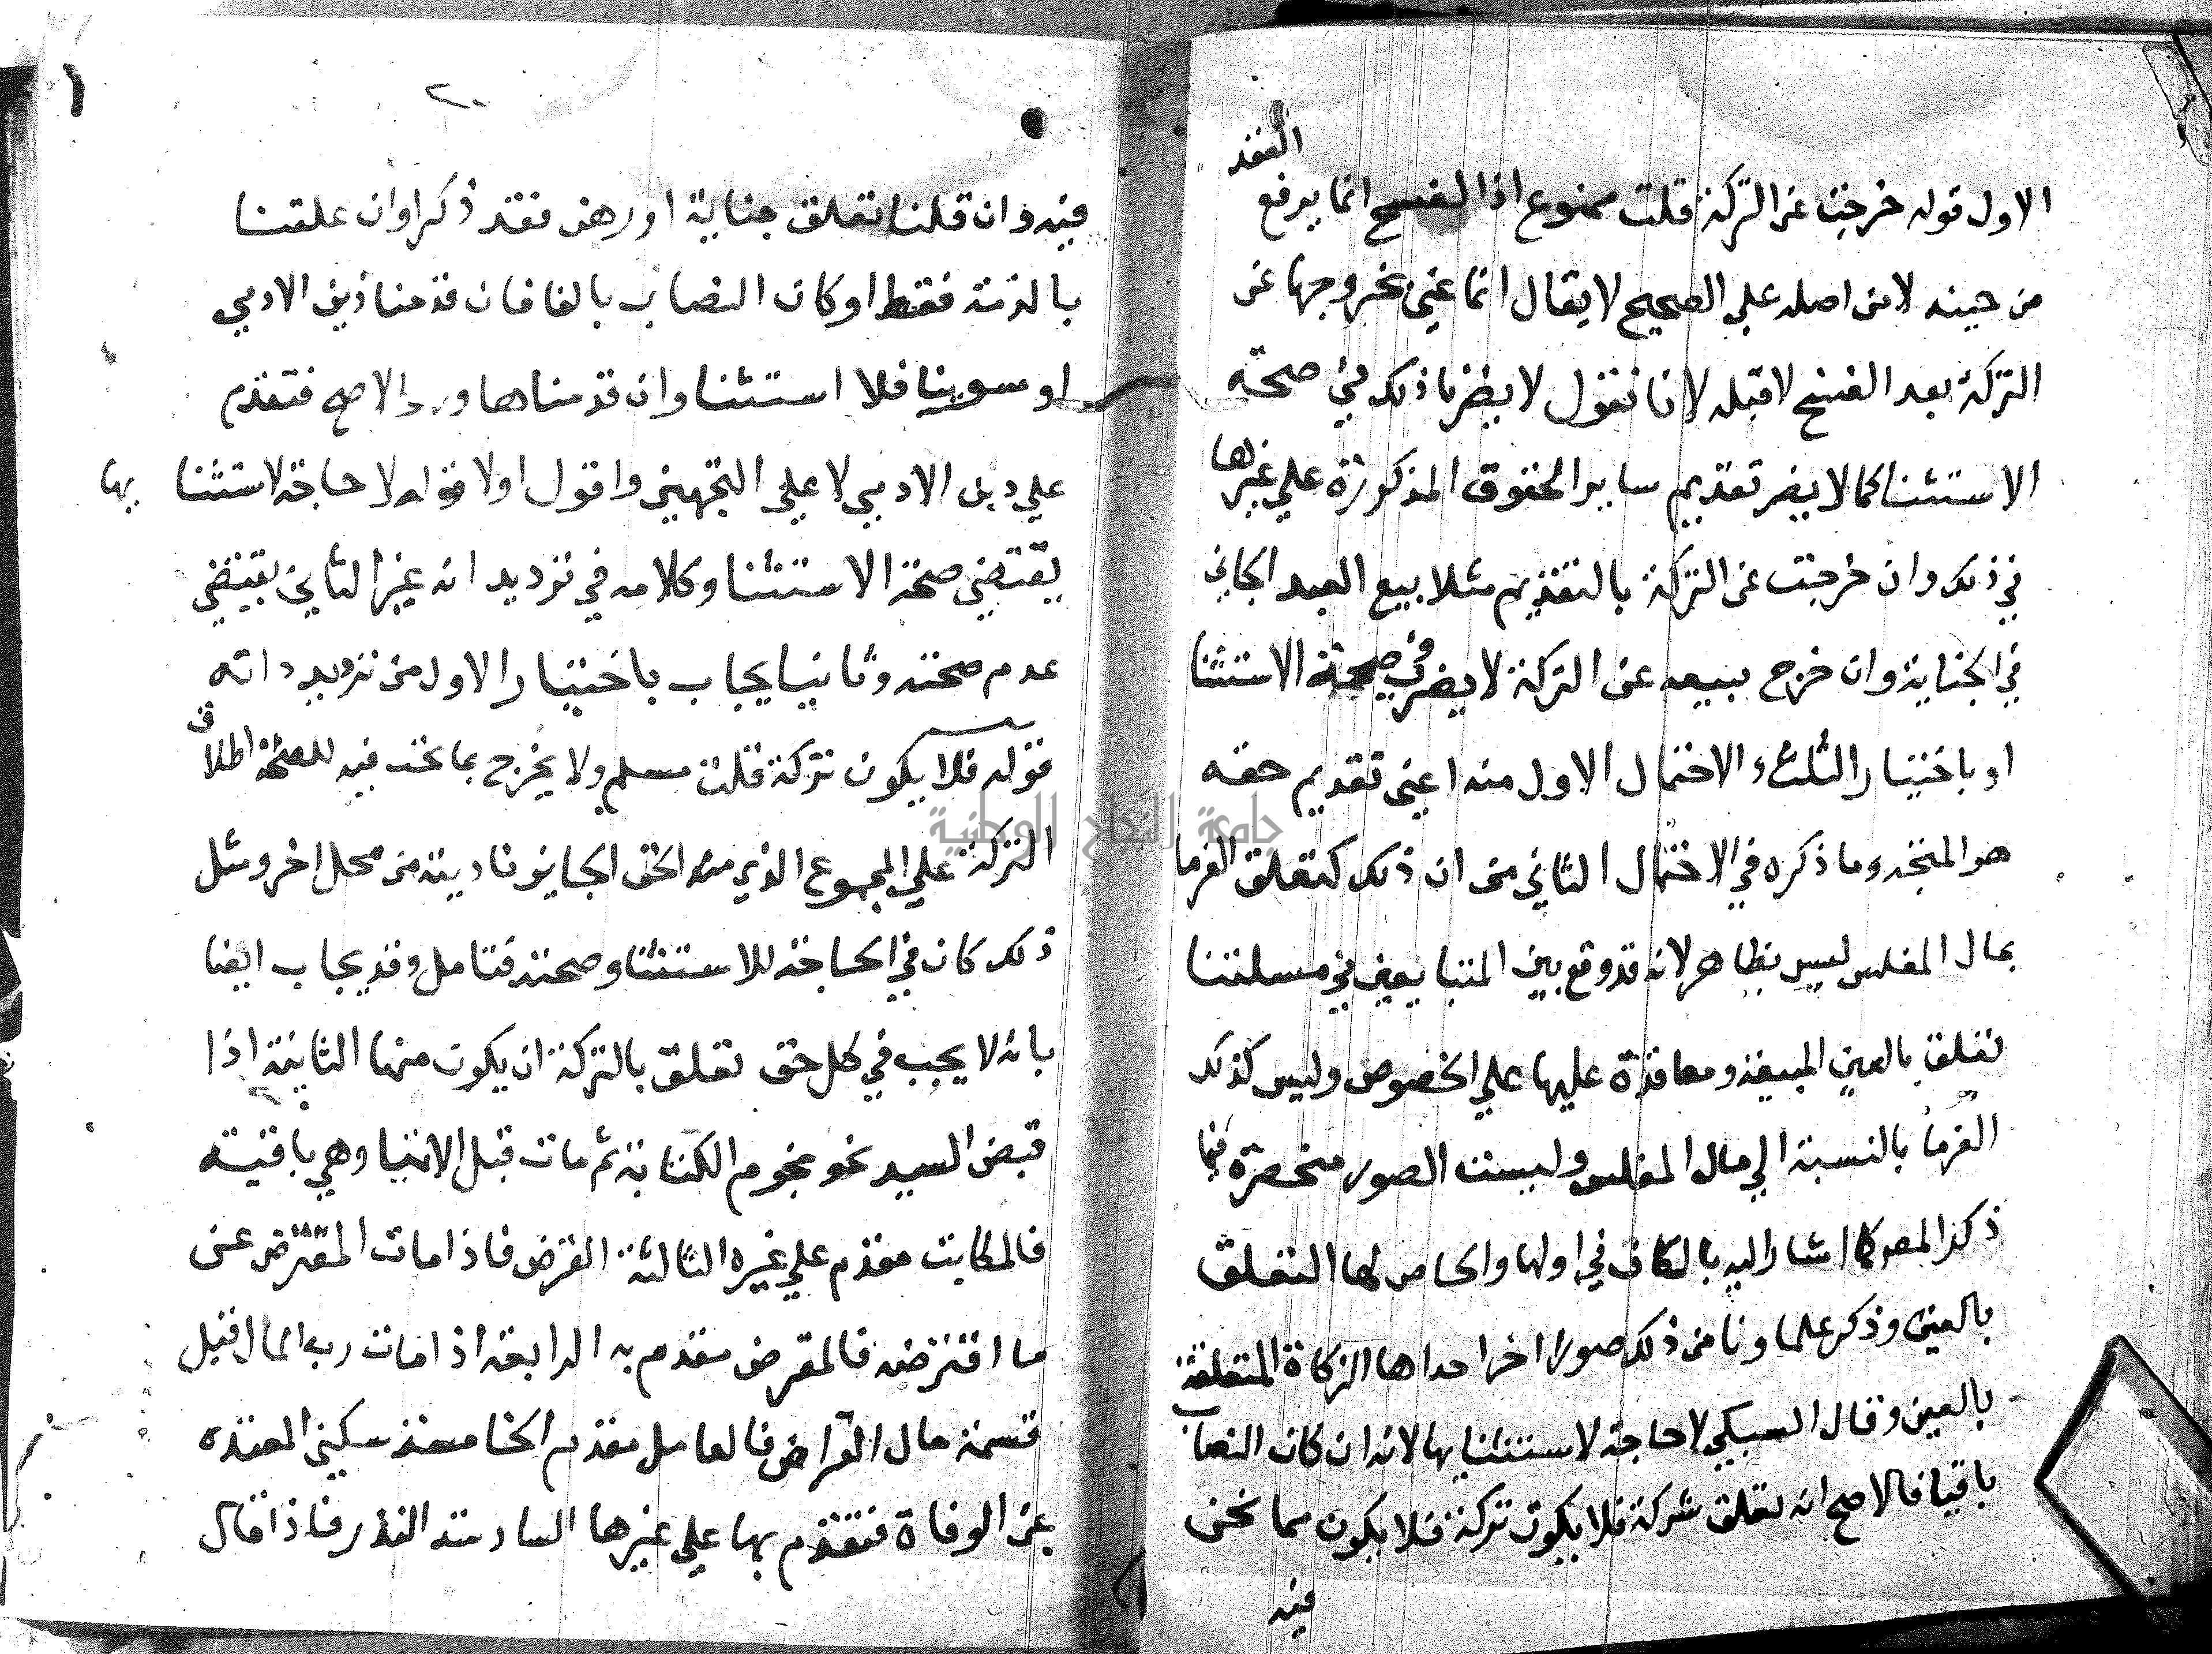 العقد
الاول قوله خرجت عن التركة قلت ممنوع اذ الفسخ انما يرفع
من حينه لا من اصله علي الصحيح لا يقال انما عني بخروجها عن
التركة بعد الفسخ لا قبله لانا نقول لا يضرنا ذلك في صحة
الاستثنا كما لا يضر تقديم ساير الحقوق المذكورة علي غيرها
في ذلك وان خرجت عن التركة بالتقديم مثلا بيع العبد الجاني
في الجناية وان خرج ببيعه عن التركة لا يضر في صحة الاستثنا
او باختيار الثلث والاحتمال الاول منه اعني تقديم حقه
هو المتجه وما ذكره في الاحتمال الثاني من ان ذلك كتعلق الغرما
بمال المفلس ليس بظاهر لانه قد وقع بين المتبايعين في مسلتنا
تعلق بالعين المبيعة ومعاقدة عليها علي الخصوص وليس كذلك
الغرما بالنسبة الي مال المفلس وليست الصور منحصرة فيما
ذكر المص كما اشار اليه بالكاف في اولها والحاصر لها التعلق
بالعين وذكر علماونا من ذلك صورا اخر احداها الزكاة المتعلقة
بالعين وقال السبكي لا حاجة لاستثنايها لانه ان كان النصاب
باقيا فالاصح انه تعلق شركة فلا يكون تركة فلا يكون مما نحن
فيه
٢٠
فيه وان قلنا تعلق جناية او رهن فقد ذكرا وان علقنا
بالذمة فقط او كان النصاب بالفا فان قدمنا دين الادمي
او سوينا فلا استثنا وان قدمناها وهو الاصح فتقدم
علي دين الادمي لا علي التجهيز واقول اولا قوله لا حاجة لاستثنا بها
يقتضي صحة الاستثنا وكلامه في ترديد انه غير الثاني يقتضي
عدم صحته وثانيا يجاب باختيار الاول من ترديد داته
قوله فلا يكون تركة قلت مسلم ولا يخرج عما نحن فيه لصحة اطلاق
التركة علي المجموع الذي منه الحق الجايز تاديته من محل اخر ومثل
ذلك كان في الحاجة للاستثنا وصحته فتامل وقد يجاب ايضا
بانه لا يجب في كل حق تعلق بالتركة ان يكون منها الثانية اذا
قبض السيد نحو نجوم الكتابة ثم مات قبل الايتا وهي باقية
فالمكاتب مقدم علي غيره الثالثة القرض فاذا مات المقترض عن
ما اقترضه فالمقرض مقدم به الرابعة اذا مات رب المال قبل
قسمة مال القراض فالعامل مقدم الخامسة سكني المعتدة
عن الوفاة فتقدم بها علي غيرها السادسة النذر فاذا قال